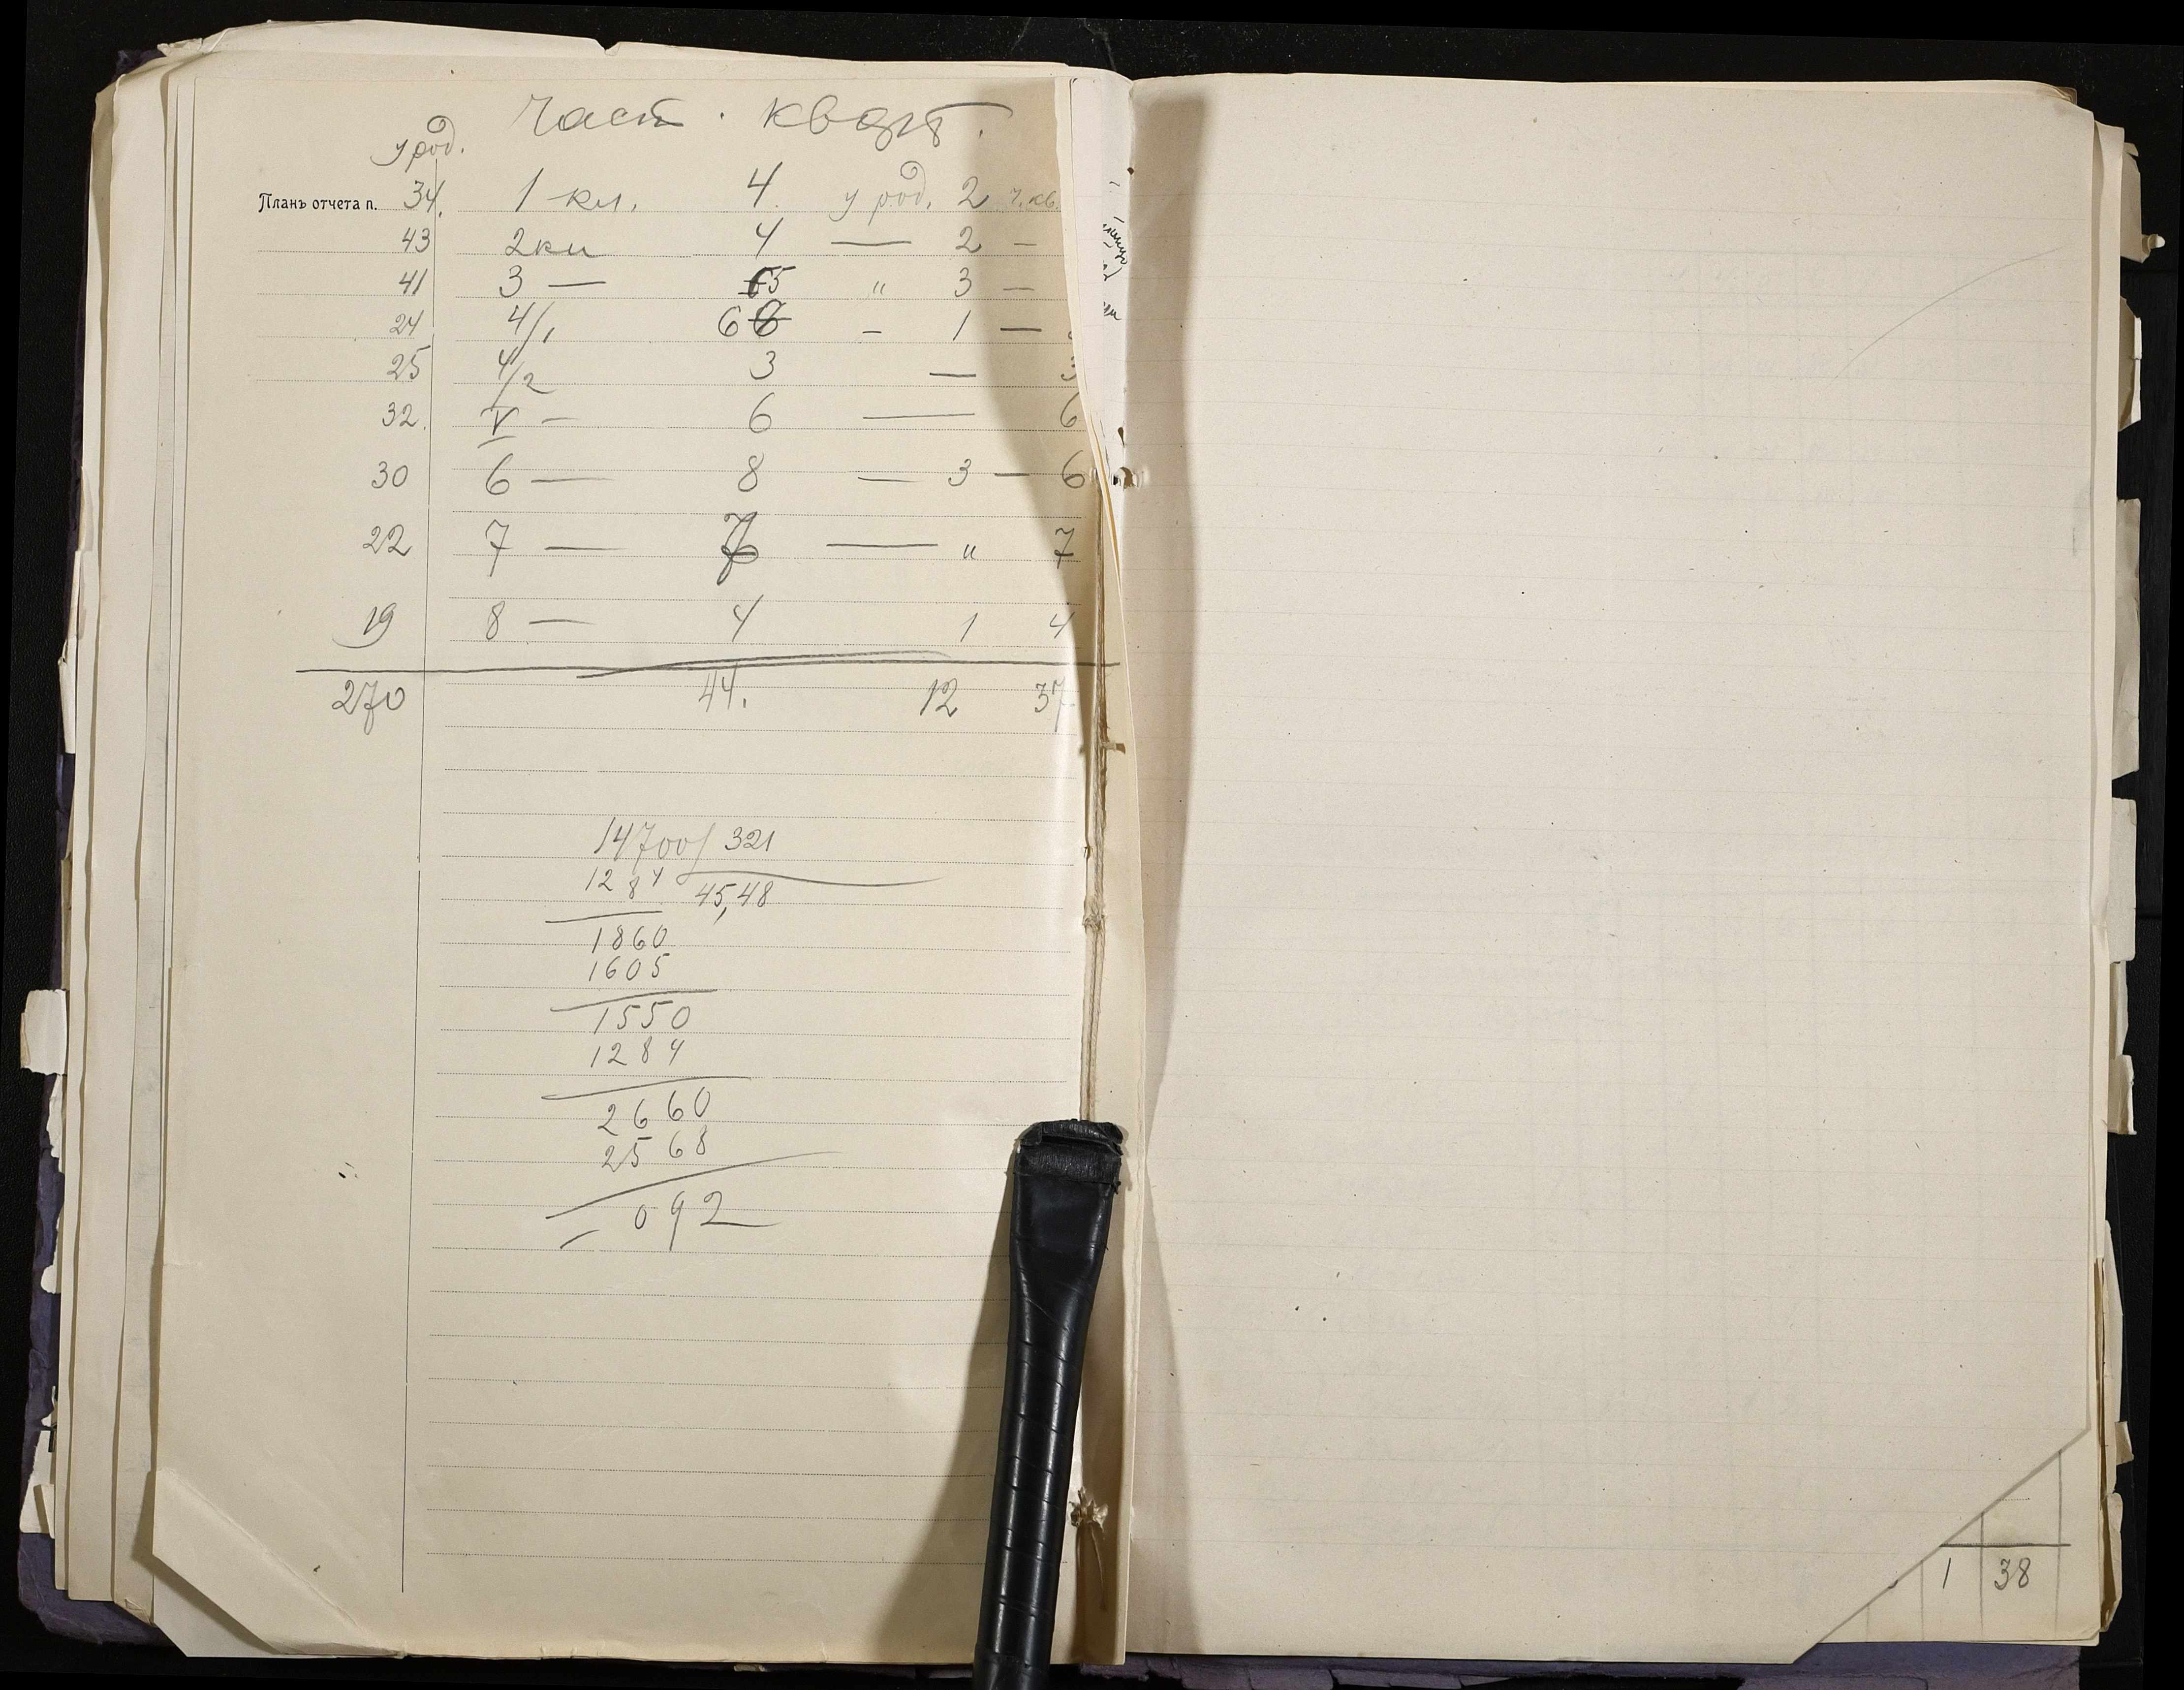 Част. кварт.
у род.
Планъ отчета п. 34. 1 кл. 4. у род. 2 ч. кв.
43 2 кл 4 — 2 —
41 3 — 5 " 3 —
24 4/1 6 – 1 —
25 4/2 3 — 3
32. V – 6 — 6
30 6 — 8 — 3 — 6
22 7 — 7 — " 7
19 8 — 4 1 4
270 44. 12 37
14700 321
1284 45,48
1860
1605
1550
1284
2660
2568
092
1 38